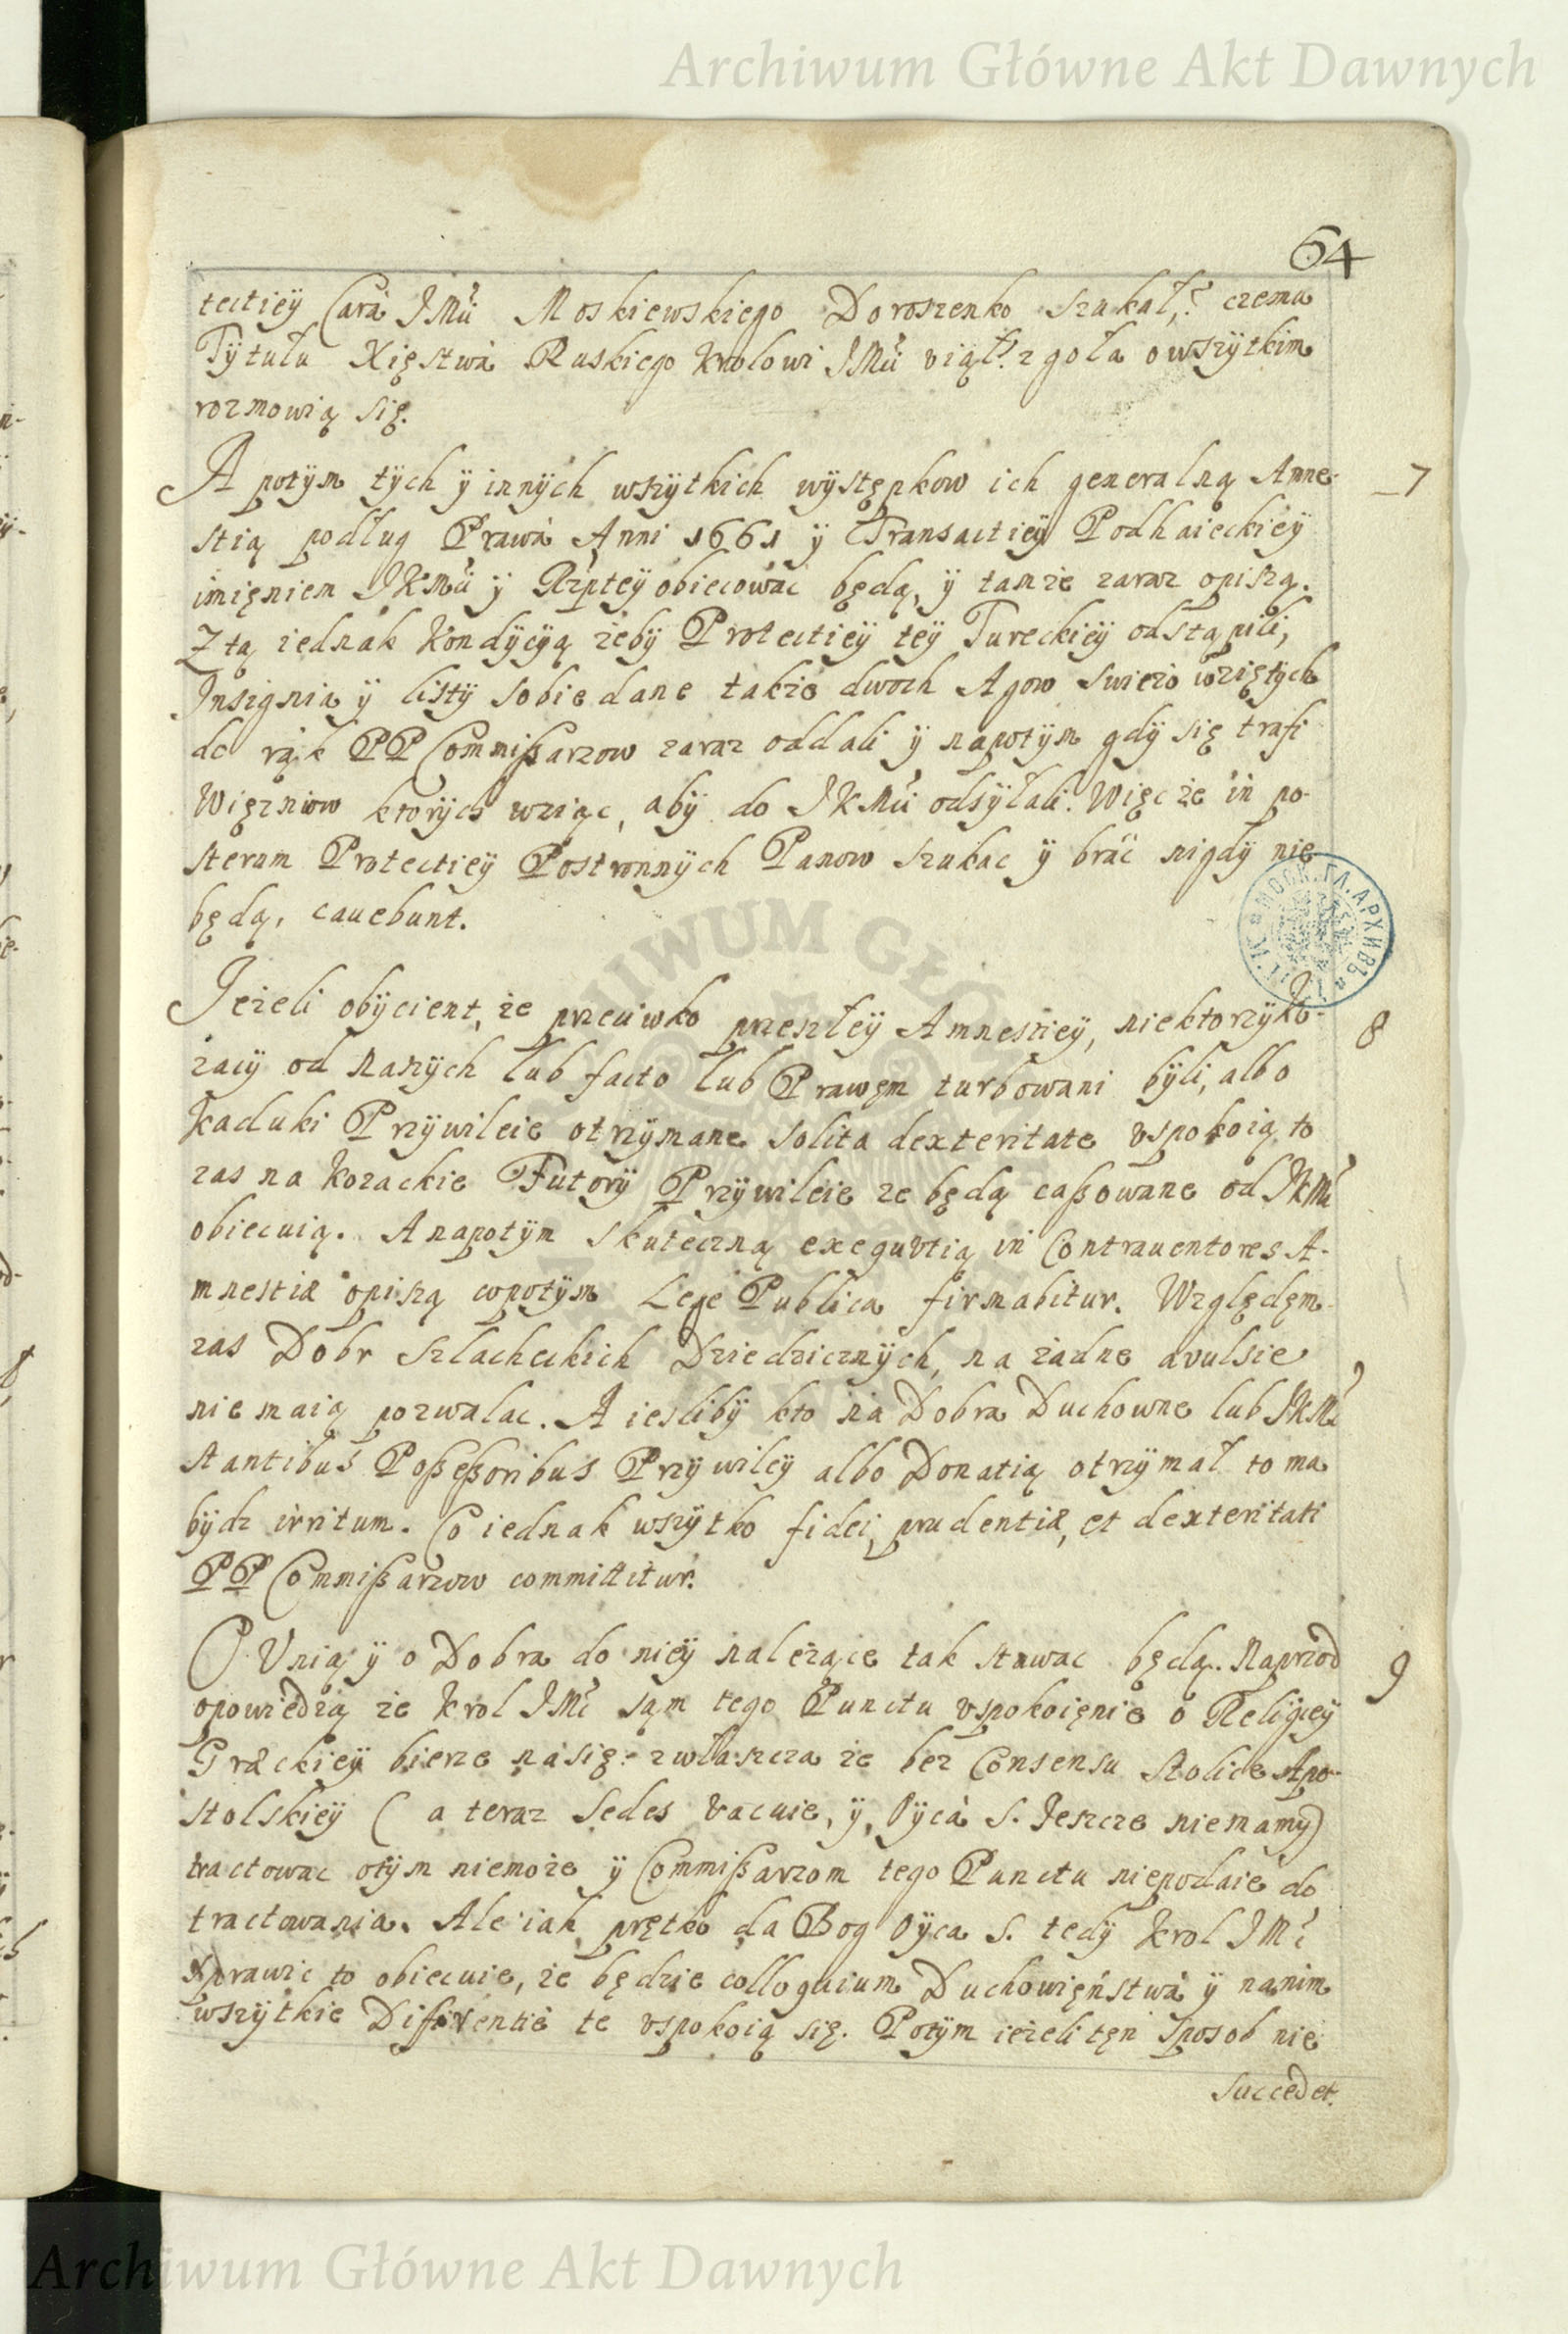 Archiwum Główne Akt Dawnych
64
tectiey Cara JMci Moskiewskiego Doroszenko szukał,? czemu
Tytułu Xięstwa Ruskiego Krolowi JMci viął? zgoła o wszytkim
rozmowią się.
A potym tych y innych wszytkich występkow ich generalną Amne-
7
stią podług Prawa Anni 1661 y Transactiey Podhaieckiey
imięniem JKMci y Rzptey obiecowac będą, y tamże zaraz opiszą.
Z tą iednak Kondycyą żeby Protectiey tey Tureckiey odstąpili,
Insignia y listy sobie dane także dwoch Agow swieżo wziętych
do rąk PP Commißarzow zaraz oddali y napotym gdy się trafi
Więzniow ktorych wziąc, aby do JKMci odsyłali. Więc że in po-
sterum Protectiey Postronnych Panow szukac y brac nigdy nie
będą, cauebunt.
МОСК. ГЛ. АРХИВЪ
Jeżeli obijcient, że przeciwko przeszłey Amnestiey, niektorzy Ko-
8
zacy od naszych lub facto lub Prawęm turbowani byli, albo
Kaduki Przywileie otrzymane solita dexteritate vspokoią to
zas na Kozackie Futory Przywileie ze będą caßowane od JKMci
obiecuią. A napotym skuteczną exequutią in Contrauentores A-
mnestiæ opiszą co potym Lege Publica firmabitur. Względęm
zas Dobr Szlacheckich Dziedzicznych, na żadne avulsie
nie maią pozwalac. A iesliby kto na Dobra Duchowne lub JKMci
stantibus Poßeßoribus Przywiley albo Donatią otrzymał to ma
bydz irritum. Co iednak wszytko fidei, prudentiæ, et dexteritati
PP Commißarzow committitur.
O Vnią y o Dobra do niey nalezące tak stawac będą. Naprzod
9
opowiedzą że Krol JMc sąm tego Punctu vspokoięnie o Religiey
Græckiey bierze nasię: zwłaszcza że bez Consensu Stolice Apo-
stolskiey ( a teraz Sedes vacuie, y, Oyca S. Jeszcze niemamy)
tractowac otym niemoże y Commißarzom tego Punctu niepodaie do
tractowania. Ale iak prętko da Bog Oyca S. tedy Krol JMc
sprawic to obiecuie, że będzie colloquium Duchowięństwa y nanim
wszytkie Differentie te vspokoią się. Potym ieżeli tęn sposob nie
succedet.
Archiwum Główne Akt Dawnych